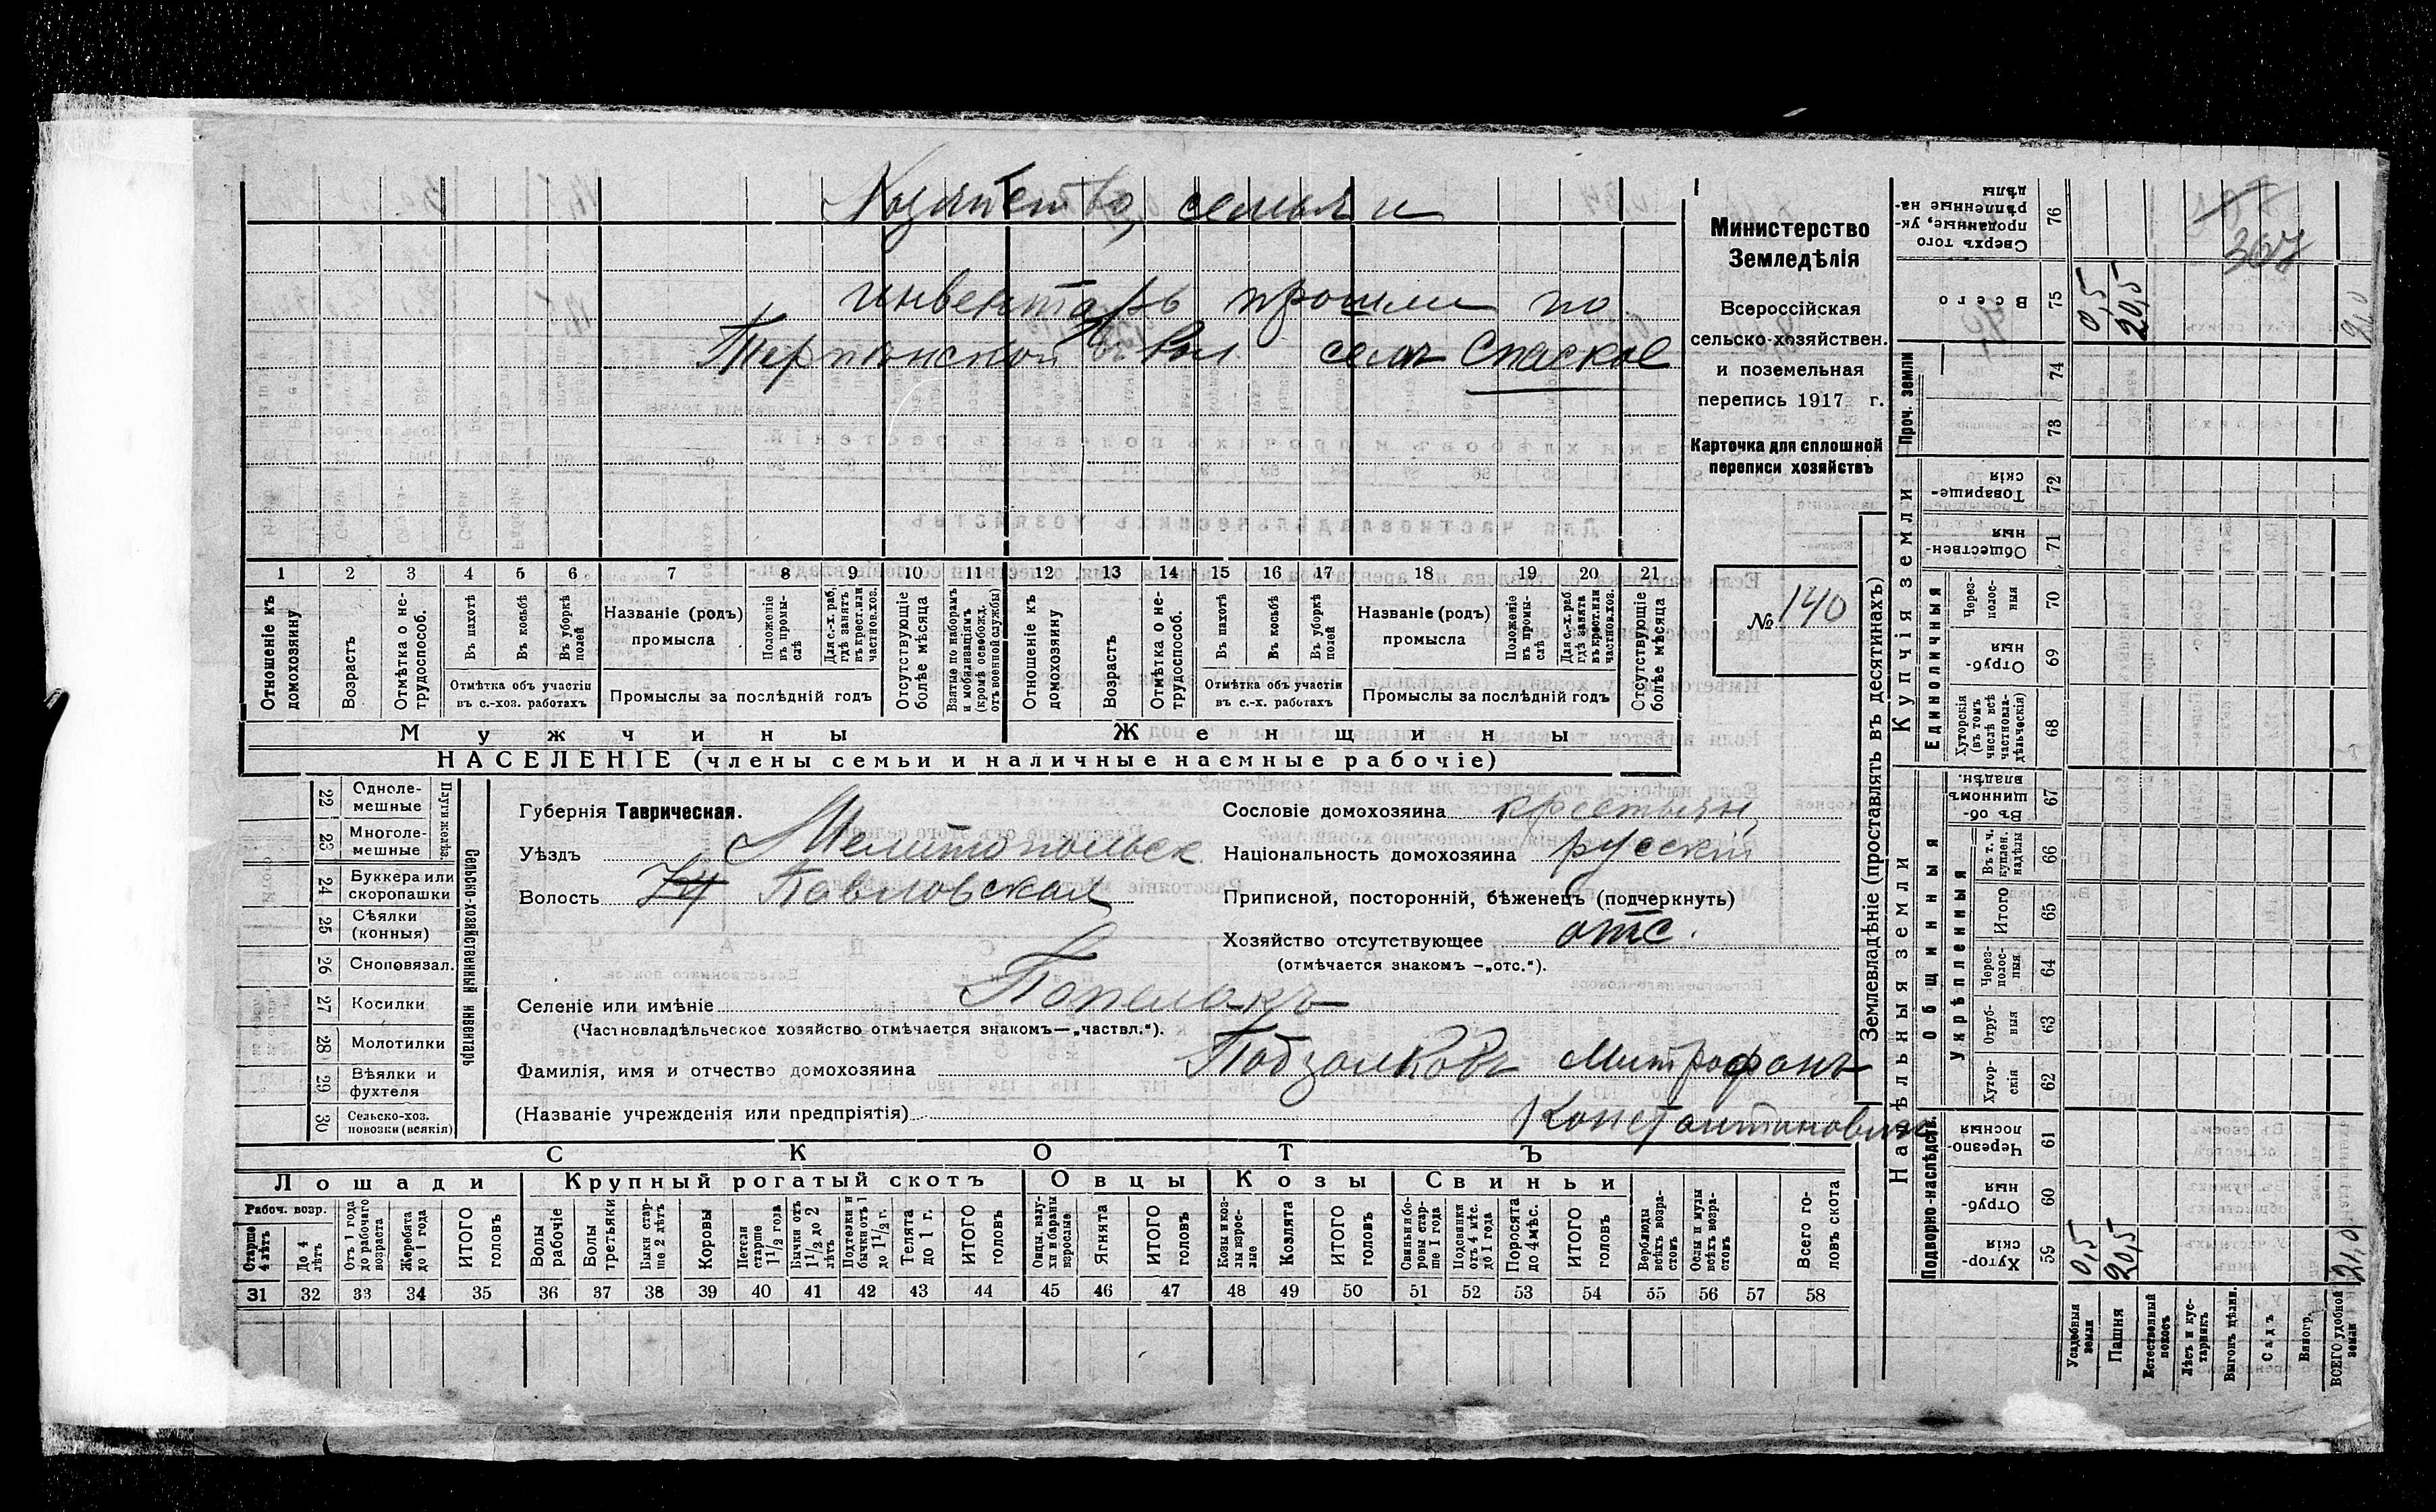 Хозяйство, семья и
инвентарь прошли по
Терпянской вол селѣ Спаское
Министерство
Земледѣлія
Всероссійская
сельско-хозяйствен.
и поземельная
перепись 1917 г.
Карточка для сплошной
переписи хозяйствъ
№ 140
1 2 3 4 5 6 7 8 9 10 11 12 13 14 15 16 17 18 19 20 21
Отношеніе къ домохозяину
Возрастъ
Отмѣтка о нетрудоспособ.
Въ пахотѣ
Въ косьбѣ
Въ уборкѣ полей
Отмѣтка объ участіи въ с.-хоз. работахъ
Названіе (родъ) промысла
Положеніе въ промыслѣ
Для с.-х. раб, гдѣ занятъ въ крест. или частнов. хоз.
Промыслы за послѣдній годъ
Отсутствующіе болѣе мѣсяца
Взятые по наборамъ и мобилизаціямъ (кромѣ освобожд. отъ военной службы)
Отношеніе къ домохозяину
Возрастъ
Отмѣтка о нетрудоспособ.
Въ пахотѣ
Въ косьбѣ
Въ уборкѣ полей
Отмѣтка объ участіи въ с.-х. работахъ
Названіе (родъ) промысла
Положеніе въ промыслѣ
Для с.-х. раб. гдѣ занята въ крест. или частнов. хоз.
Промыслы за послѣдній годъ
Отсутствующіе болѣе мѣсяца
Мужчины Женщины
НАСЕЛЕНІЕ (члены семьи и наличные наемные рабочіе)
22 Одноле-мешные
23 Многоле-мешные
Плуги желѣз.
24 Буккера или скоропашки
25 Сѣялки (конныя)
26 Сноповязал.
27 Косилки
28 Молотилки
29 Вѣялки и фухтеля
30 Сельско-хоз. повозки (всякія)
Сельско-хозяйственный инвентарь
Губернія Таврическая.
Уѣздъ Мелитопольск
Волость Павловская
Селеніе или имѣніе Попелакъ
(Частновладѣльческое хозяйство отмѣчается знакомъ—„частвл.“).
Фамилія, имя и отчество домохозяина Подзолковъ Митрофанъ
(Названіе учрежденія или предпріятія) Константинович
Сословіе домохозяина крестьян
Національность домохозяина русскій
Приписной, посторонній, бѣженецъ (подчеркнуть)
Хозяйство отсутствующее отс.
(отмѣчается знакомъ —„отс.“).
СКОТЪ
Лошади Крупный рогатый скотъ Овцы Козы Свиньи
Рабоч. возр.
Старше 4 лѣтъ
До 4 лѣтъ
Отъ 1 года до рабочаго возраста
Жеребята до 1 года
ИТОГО головъ
Волы рабочіе
Волы третьяки
Быки старше 2 лѣтъ
Коровы
Нетели старше 1½ года
Бычки отъ 1½ до 2 лѣтъ
Подтелки и бычки отъ 1 до 1½ г.
Телята до 1 г.
ИТОГО головъ
Овцы, валухи и бараны взрослые
Ягнята
ИТОГО головъ
Козы и козлы взрослые
Козлята
ИТОГО головъ
Свиньи и боровы старше 1 года
Подсвинки отъ 4 мѣс. до 1 года
Поросята до 4 мѣс.
ИТОГО головъ
Верблюды всѣхъ возрастовъ
Ослы и мулы всѣхъ возрастовъ
Всего головъ скота
31 32 33 34 35 36 37 38 39 40 41 42 43 44 45 46 47 48 49 50 51 52 53 54 55 56 57 58
Землевладѣніе (проставлять въ десятинахъ)
Надѣльныя земли Купчія земли Проч. земли
Подворно-наслѣдств. Общинныя Единоличныя
Укрѣпленныя
Хуторскія 59
Отрубныя 60
Черезполосныя 61
Хуторскія 62
Отрубныя 63
Черезполосныя 64
Итого 65
Въ т. ч. куплен. надѣлы 66
Въ общинномъ владѣн. 67
Хуторскія (въ томъ числѣ всѣ частновладѣльческія) 68
Отрубныя 69
Черезполосныя 70
Общественныя 71
Товарищескія 72
73
74
Всего 75
Сверхъ того проданные, укрѣпленные надѣлы 76
Усадебныя земли 0,5 0,5
Пашня 20,5 20,5
Естественный покосъ
Лѣсъ и кустарникъ
Выгонъ цѣлин.
Садъ
Виногр.
ВСЕГО удобной земли 21,0
307